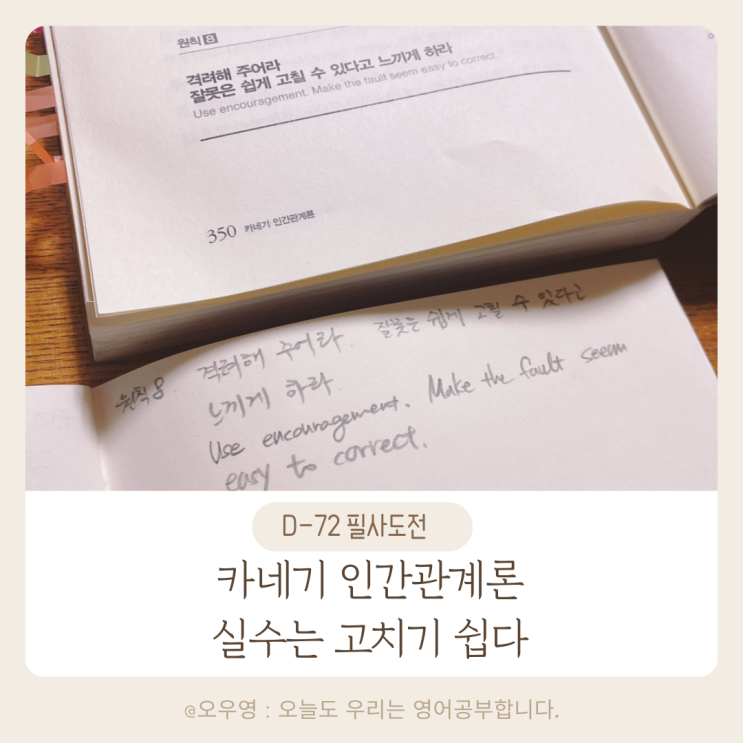 원칙 8
격려해 주어라
잘못은 쉽게 고칠 수 있다고 느끼게 하라
Use encouragement. Make the fault seem easy to correct.
350 카네기 인간관계론
원칙 8 격려해 주어라. 잘못은 쉽게 고칠 수 있다고
느끼게 하라
Use encouragement. Make the fault seem
easy to correct.
D-72 필사도전
카네기 인간관계론
실수는 고치기 쉽다
@오우영 : 오늘도 우리는 영어공부합니다.